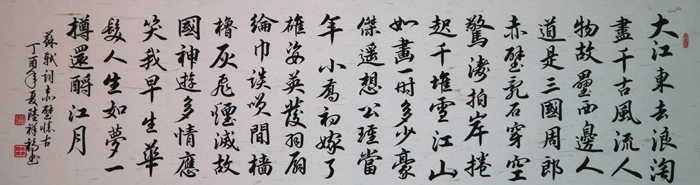 大江東去浪淘
盡千古風流人
物故壘西邊人
道是三國周郎
赤壁亂石穿空
驚濤拍岸捲
起千堆雪江山
如畫一時多少豪
傑遥想公瑾當
年小喬初嫁了
雄姿英發羽扇
綸巾談笑間檣
櫓灰飛煙滅故
國神遊多情應
笑我早生華
髮人生如夢一
樽還酹江月
蘇軾詞赤壁懷古
丁酉年夏陸祥福書